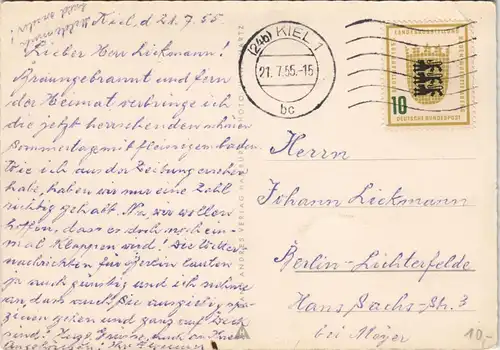 Kiel, d 21.7.55
Lieber Herr Lickmann!
Braungebrannt und fern
der Heimat verbringe ich
die jetzt herrschenden schönen
Sommertage mit fleissigem baden.
Wie ich aus der Zeitung ersehen
habe, haben wir nur eine Zahl
richtig gehabt. Na, wir wollen
hoffen, dass es doch noch ein-
mal klappen wird! Die Wetter-
nachrichten für Berlin lauten
ja auch günstig und ich nehme
an, dass auch Sie ausgiebig spa-
zieren gehen und ganz auf Deck
sind. Grüsse, auch an Ihre
Angehörigen
ANDRES VERLAG HAMBURG
PHOTO
(24b) KIEL 1
21.7.55.-15
bc
LANDESAUSSTELLUNG
10
DEUTSCHE BUNDESPOST
Herrn
Johann Lickmann
Berlin-Lichterfelde
Hans Sachs-Str. 3
bei Meyer
10,-